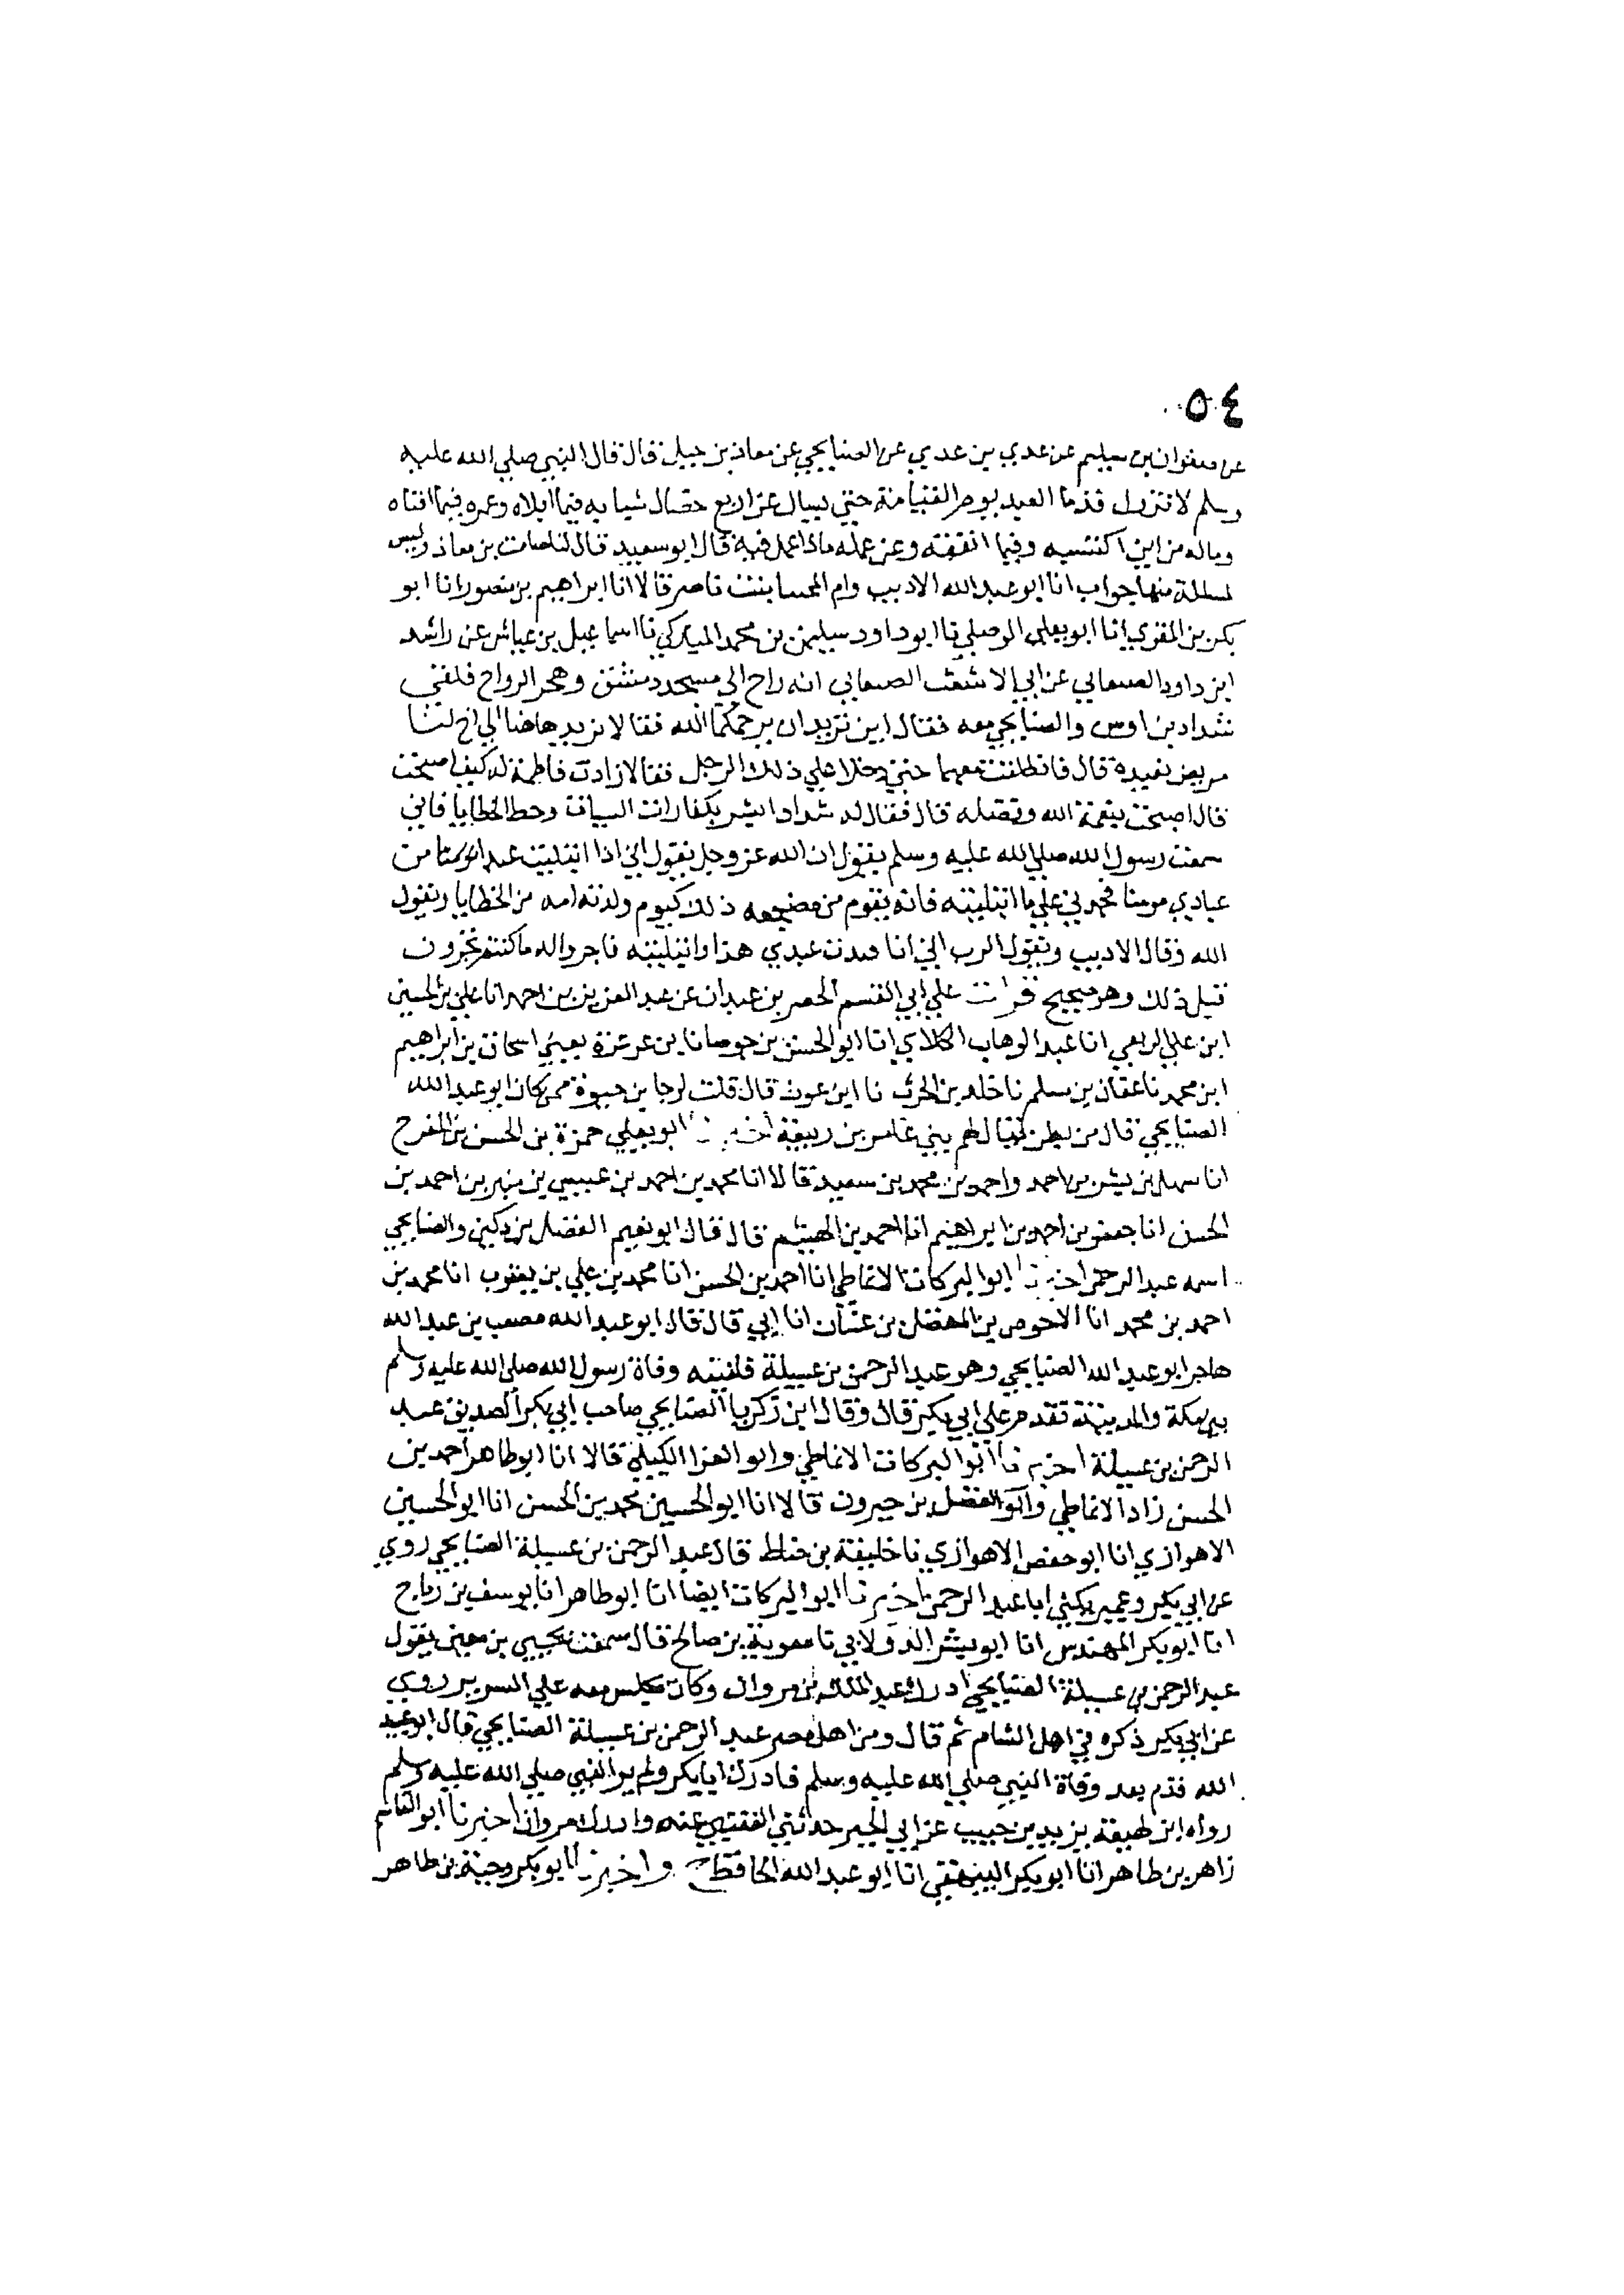 ٥٤
عن صفوان بن سليم عن عدي بن عدي عن الصنابحي عن معاذ بن جبل قال قال النبي صلي الله عليه
وسلم لا تزول قدما العبد يوم القيامة حتي يسال عن اربع خصال شبابه فيما ابلاه وعمره فيما افناه
وماله من اين اكتسبه وفيما انفقه وعن عمله ماذا عمل فيه قال ابو سعيد قال لنا صامت بن معاذ وليس
لمسلة منها جواب انا ابو عبد الله الاديب وام المجتبا بنت ناصر قالا انا ابراهيم بن منصور انا ابو
بكر بن المقري انا ابو يعلي الموصلي نا ابو داود سليمن بن محمد المباركي نا اسماعيل بن عياش عن راشد
ابن داود الصنعاني عن ابي الاشعث الصنعاني انه راح الي مسجد دمشق وهجر الرواح فلقي
شداد بن اوس والصنابحي معه فقال اين تريدان يرحمكما الله فقالا نريد هاهنا الي اخ لنا
مريض نعوده قال فانطلقت معهما حتي دخلا علي ذلك الرجل فقالا له كيف اصبحت
قال اصبحت بنعمة الله وفضله قال فقال له شداد ابشر بكفارات السيات وحط الخطايا فاني
سمعت رسول الله صلي الله عليه وسلم يقول ان الله عز وجل يقول اني اذا ابتليت عبدا مومنا من
عبادي مومنا فحمدني علي ما ابتليته فانه يقوم من مضجعه ذلك كيوم ولدته امه من الخطايا ويقول
الله وقال الاديب ويقول الرب اني انا قيدت عبدي هذا وابتليته فاجروا له ما كنتم تجرون
قبل ذلك وهو صحيح قرات علي ابي القسم الخضر بن عبدان عن عبد العزيز بن احمد انا علي بن الحسين
ابن علي الربعي انا عبد الوهاب الكلابي انا ابو الحسن بن جوصا نا بن عرعرة يعني اسحاق بن ابراهيم
ابن محمد نا عفان بن مسلم نا خالد بن الحرث نا ابن عون قال قلت لرجا بن حيوة ممن كان ابو عبد الله
الصنابحي قال من بطن يقال لهم بني عامر بن ربيعة اخبرنا ابو يعلي حمزة بن الحسن بن المفرج
انا سهل بن بشر بن احمد واحمد بن محمد بن سعيد قالا انا محمد بن احمد بن عيسي بن منير بن احمد بن
الحسن انا جعفر بن احمد بن ابراهيم انا احمد بن الهيثم قال قال ابو نعيم الفضل بن دكين والصنابحي
اسمه عبد الرحمن اخبرنا ابو البركات الانماطي انا احمد بن الحسن انا محمد بن علي بن يعقوب انا محمد بن
احمد بن محمد انا الاحوص بن المفضل بن غسان انا ابي قال قال ابو عبد الله مصعب بن عبد الله
هاجر ابو عبد الله الصنابحي وهو عبد الرحمن بن عسيلة فلقيته وفاة رسول الله صلي الله عليه وسلم
بين مكة والمدينة فقدم علي ابي بكر قال وقال ابن زكريا الصنابحي صاحب ابي بكر الصديق عبد
الرحمن بن عسيلة اخبرنا ابو البركات الانماطي وابو العز الكيلي قالا انا ابو طاهر احمد بن
الحسن زاد الانماطي وابو الفضل بن خيرون قالا انا ابو الحسين محمد بن الحسن انا ابو الحسين
الاهوازي انا ابو حفص الاهوازي نا خليفة بن خياط قال عبد الرحمن بن عسيلة الصنابحي روي
عن ابي بكر وعمر يكني ابا عبد الرحمن اخبرنا ابو البركات ايضا انا ابو طاهر انا يوسف بن رباح
انا ابو بكر المهندس انا ابو بشر الدولابي نا معوية بن صالح قال سمعت يحيي بن معين يقول
عبد الرحمن بن عسيلة الصنابحي ادرك عبد الملك بن مروان وكان يجلس معه علي السرير روي
عن ابي بكر ذكره في اهل الشام ثم قال ومن اهل مصر عبد الرحمن بن عسيلة الصنابحي قال ابو عبد
الله قدم بعد وفاة النبي صلي الله عليه وسلم فادرك ابا بكر ولم ير النبي صلي الله عليه وسلم
رواه ابن لهيعة يزيد بن حبيب عن ابي الخير حدثني عنه وادرك مروان اخبرنا ابو القاسم
زاهر بن طاهر انا ابو بكر البيهقي انا ابو عبد الله الحافظ واخبرنا ابو بكر وجيه بن طاهر